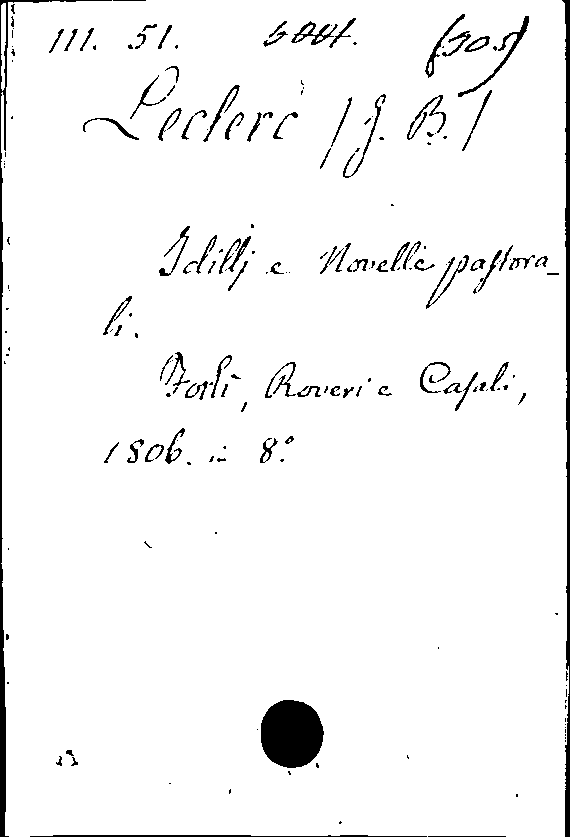 111. 51. (305)
Leclerc / J. B. /
Idillj e Novelle pastora_
li.
Forlì, Roveri e Casali,
1806. in 8.º